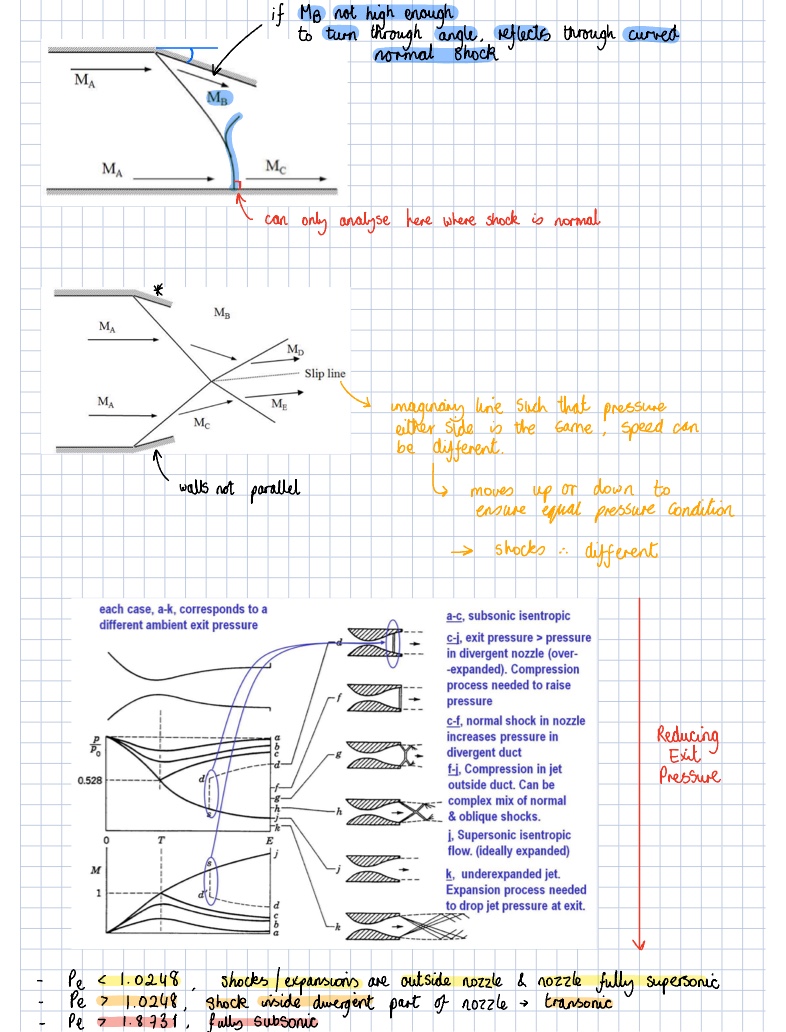 if MB not high enough
to turn through angle, reflects through curved
normal shock
MA
MB
MA
MC
can only analyse here where shock is normal
*
MB
MA
MD
Slip line
MA
ME
MC
imaginary line such that pressure
either side is the same, speed can
be different.
walls not parallel
moves up or down to
ensure equal pressure condition
→ shocks ∴ different
each case, a-k, corresponds to a
different ambient exit pressure
a-c, subsonic isentropic
c-j, exit pressure > pressure
in divergent nozzle (over-
-expanded). Compression
process needed to raise
pressure
c-f, normal shock in nozzle
increases pressure in
divergent duct
f-j, Compression in jet
outside duct. Can be
complex mix of normal
& oblique shocks.
j, Supersonic isentropic
flow. (ideally expanded)
k, underexpanded jet.
Expansion process needed
to drop jet pressure at exit.
d
f
g
h
j
k
P/P0
a
b
c
d
0.528
d'
s
f
g
h
j
k
0
T
E
M
j
s
1
d'
d
c
b
a
Reducing
Exit
Pressure
- Pe < 1.0248, shocks/expansions are outside nozzle & nozzle fully supersonic
- Pe > 1.0248, shock inside divergent part of nozzle → transonic
- Pe > 1.8731, fully subsonic